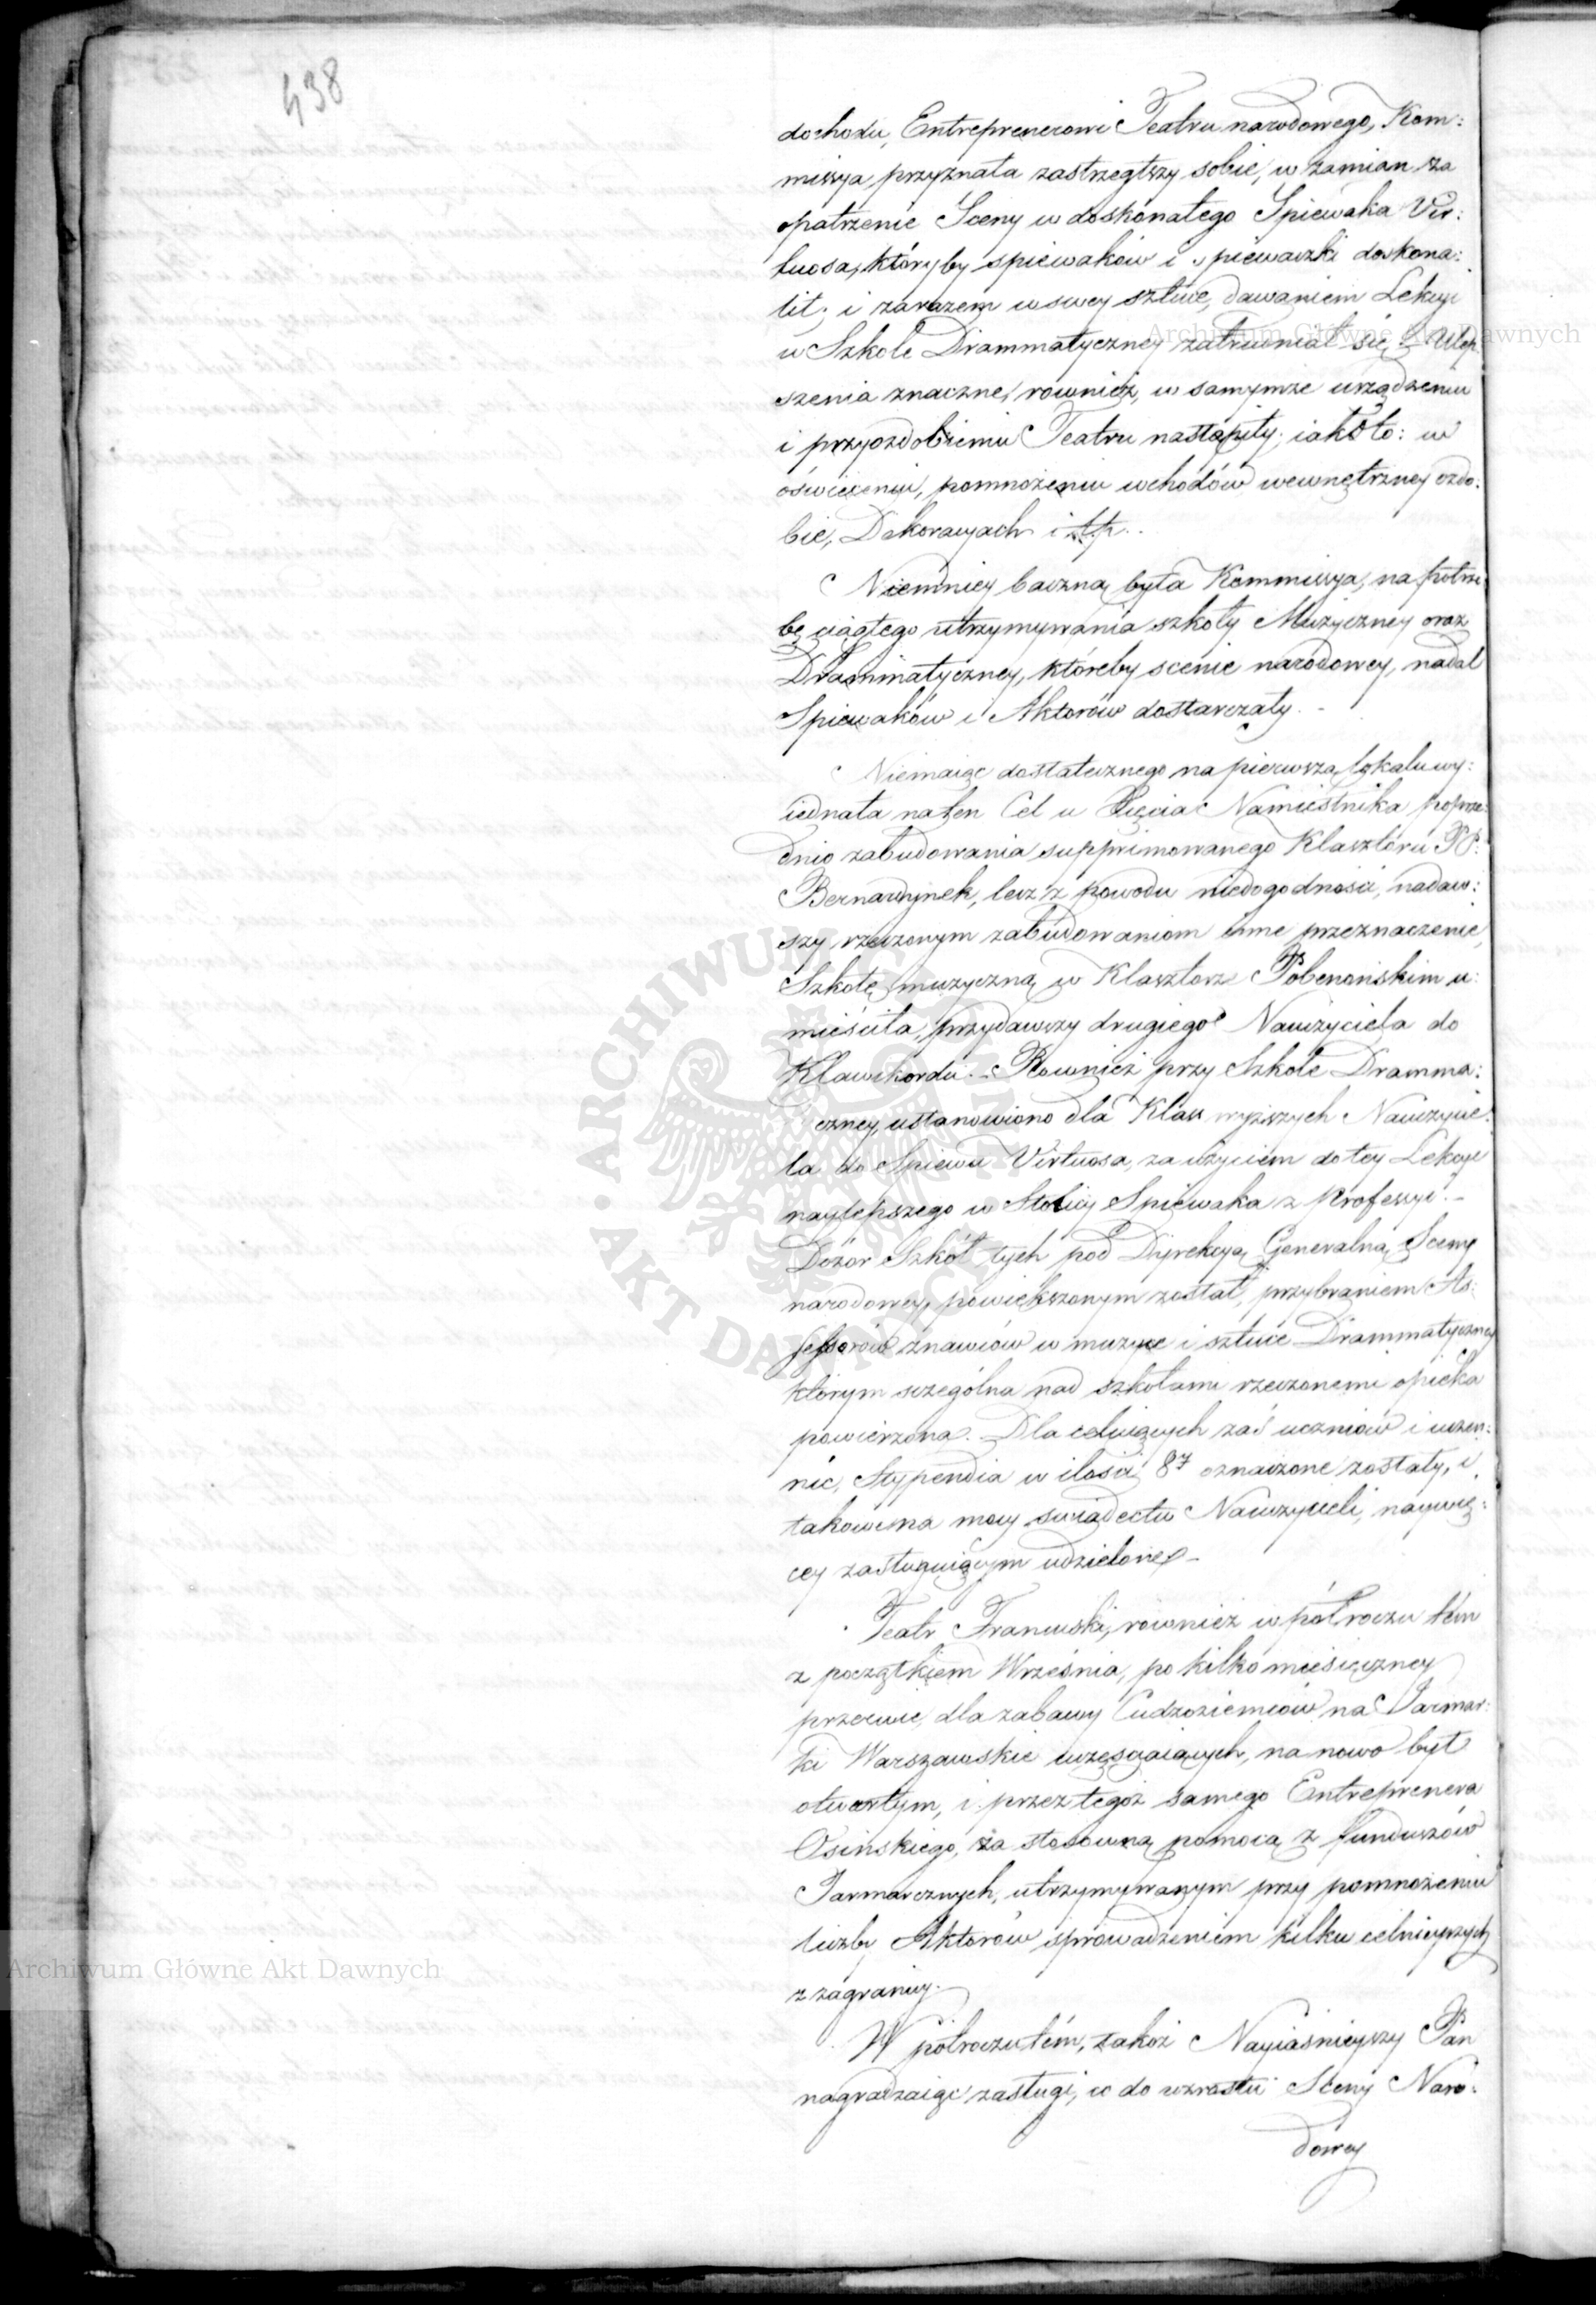 438
dochodu, Entreprenerowi Teatru narodowego, Kom:
missya przyznała zastrzegłszy sobie, w zamian za
opatrzenie Sceny w doskonałego Spiewaka Vir:
tuosa, któryby spiewaków i spiewaczki doskona:
lił; i zarazem w swey sztuce, dawaniem Lekcyi
w Szkole Drammatyczney zatrudniał się. – Ulep
szenia znaczne, również, w samymże urządzeniu
i przyozdobieniu Teatru nastąpiły; iakoto: w
oświeceniu, pomnożeniu wchodów wewnętrzney ozdo:
bie, Dekoracyach i t.p..
Niemniey baczną była Kommissya, na potrze
bę ciągłego utrzymywania szkoły Muzyczney oraz
Drammatyczney, któreby scenie narodowey, nadal
Spiewaków i Aktorów dostarczały. –
Niemaiąc dostatecznego na pierwszą lokalu wy:
iednała na ten Cel u Xięcia Namiestnika poprze:
dnio zabudowania supprimowanego Klasztoru PP.
Bernardynek, lecz z powodu niedogodności, nadaw:
szy rzeczonym zabudowaniom inne przeznaczenie,
Szkołę muzyczną w Klasztorze Pobenońskim u:
mieściła, przydawszy drugiego Nauczyciela do
Klawikordu. – Rownież przy Szkole Dramma:
czney, ustanowiono dla Klass wyższych Nauczycie:
la do Spiewu Virtuosa, za użyciem do tey Lekcyi
naylepszego w Stolicy Spiewaka z Professyi. –
Dozór Szkół tych pod Dyrekcyą Generalną Sceny
narodowey, powiększonym został, przybraniem As:
sessorów znawców w muzyce i sztuce Drammatyczney
którym szczególna nad szkołami rzeczonemi opieka
powierzona. – Dla celuiących zaś uczniów i uczen:
nic, Stypendia w ilości 87 oznaczone zostały, i
takowe na mocy swiadectw Nauczycieli, naywię:
cey zasługuiącym udzielone. –
Teatr Francuski, również w półroczu tém
z początkiem Września, po kilkomiesięczney
przerwie, dla zabawy Cudzoziemców na Jarmar:
ki Warszawskie uczęszczaiących, na nowo był
otwartym, i przez tegoż samego Entreprenera
Osinskiego, za stosowną pomocą z funduszów
Jarmarcznych, utrzymywanym przy pomnożeniu
liczby Aktorów sprowadzeniem kilku celnieyszych
z zagranicy.
W półroczu tém, takoż Nayiaśnieyszy Pan
nagradzaiąc zasługi, co do wzrostu Sceny Naro:
dowey
Archiwum Główne Akt Dawnych
Archiwum Główne Akt Dawnych
ARCHIWUM GŁÓWNE AKT DAWNYCH